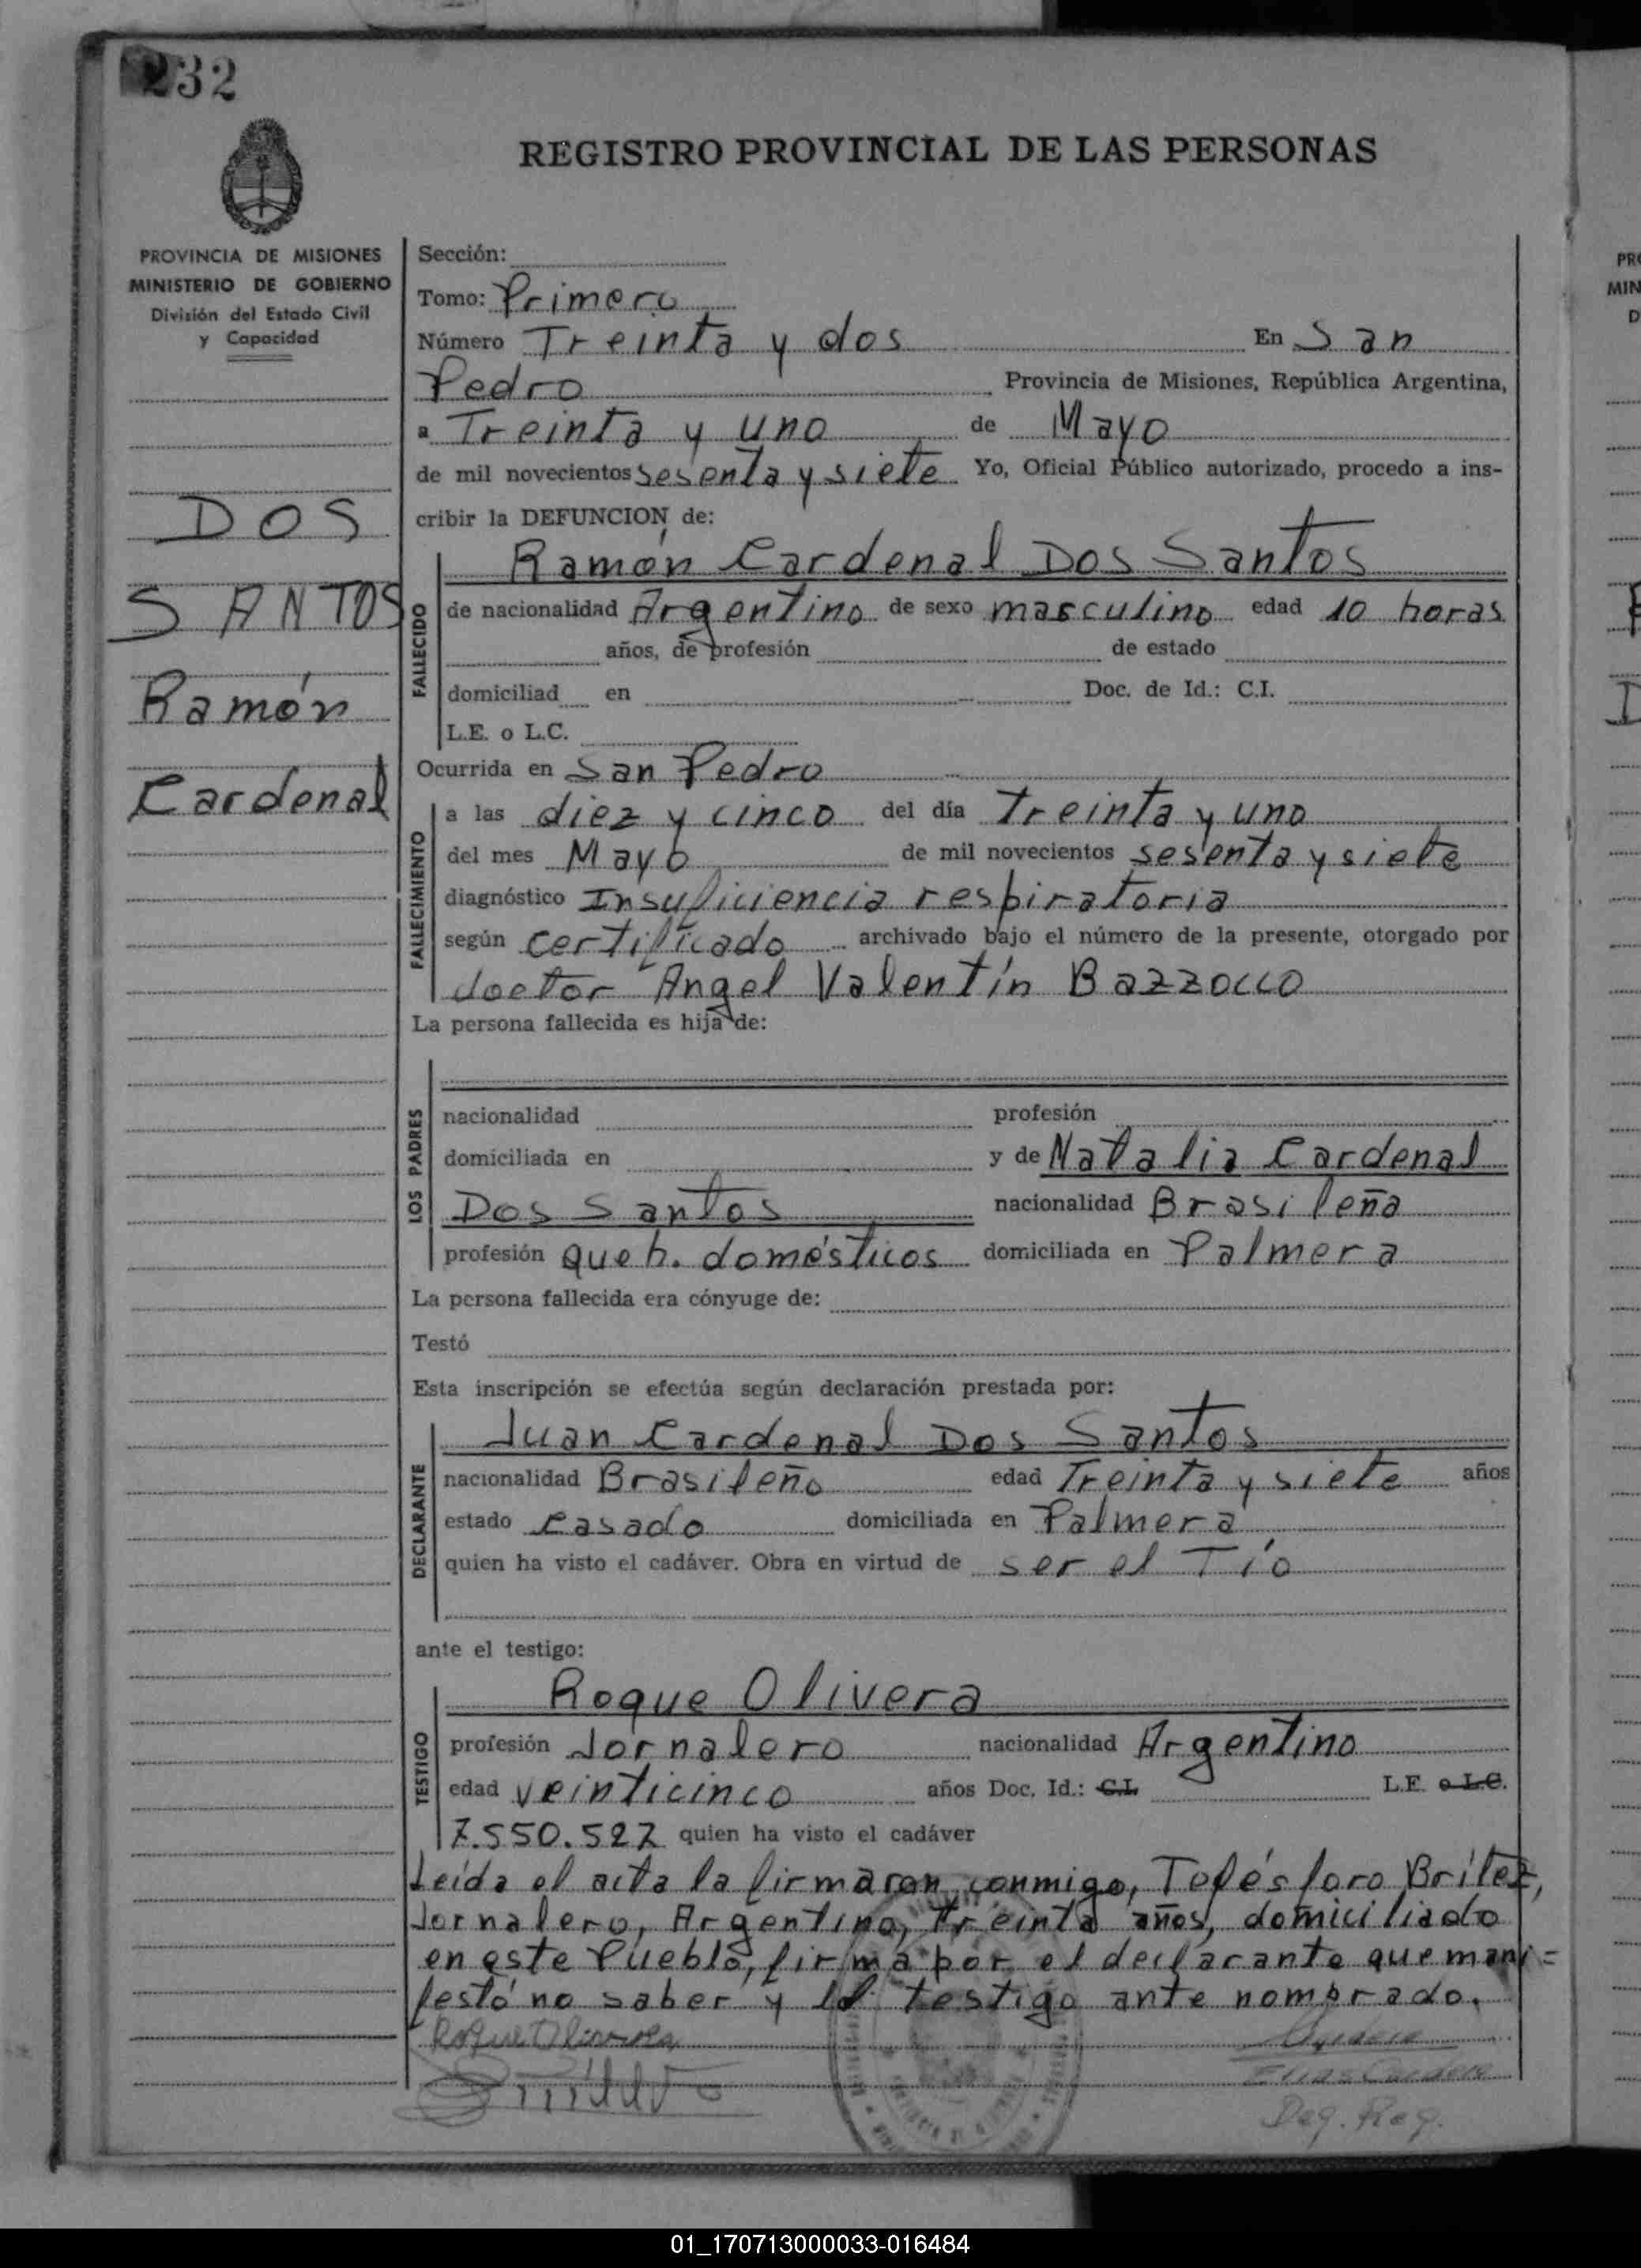 232
REGISTRO PROVINCIAL DE LAS PERSONAS
PROVINCIA DE MISIONES
MINISTERIO DE GOBIERNO
División del Estado Civil
y Capacidad
DOS
SANTOS
Ramón
Cardenal
Sección:
Tomo: Primero
Número Treinta y dos En San
Pedro Provincia de Misiones, República Argentina,
a Treinta y uno de Mayo
de mil novecientos sesenta y siete Yo, Oficial Público autorizado, procedo a ins-
cribir la DEFUNCION de:
Ramón Cardenal Dos Santos
FALLECIDO
de nacionalidad Argentino de sexo masculino edad 10 horas
años, de profesión de estado
domiciliad en Doc. de Id.: C.I.
L.E. o L.C.
Ocurrida en San Pedro
FALLECIMIENTO
a las diez y cinco del día Treinta y uno
del mes Mayo de mil novecientos sesenta y siete
diagnóstico Insuficiencia respiratoria
según certificado archivado bajo el número de la presente, otorgado por
doctor Angel Valentín Bazzocco
La persona fallecida es hija de:
LOS PADRES
nacionalidad profesión
domiciliada en y de Natalia Cardenal
Dos Santos nacionalidad Brasileña
profesión queh. domésticos domiciliada en Palmera
La persona fallecida era cónyuge de:
Testó
Esta inscripción se efectúa según declaración prestada por:
Juan Cardenal Dos Santos
DECLARANTE
nacionalidad Brasileño edad Treinta y siete años
estado casado domiciliada en Palmera
quien ha visto el cadáver. Obra en virtud de ser el Tío
ante el testigo:
Roque Olivera
TESTIGO
profesión Jornalero nacionalidad Argentino
edad veinticinco años Doc. Id.: C.I. L.E. o L.C.
7.550.527 quien ha visto el cadáver
Leída el acta la firmaron conmigo, Telésforo Britez,
Jornalero, Argentino, Treinta años, domiciliado
en este Pueblo, firma por el declarante que mani=
festó no saber y el testigo ante nombrado.
Roque Olivera
Deg. Reg.
PRO
MIN
D
01_170713000033-016484